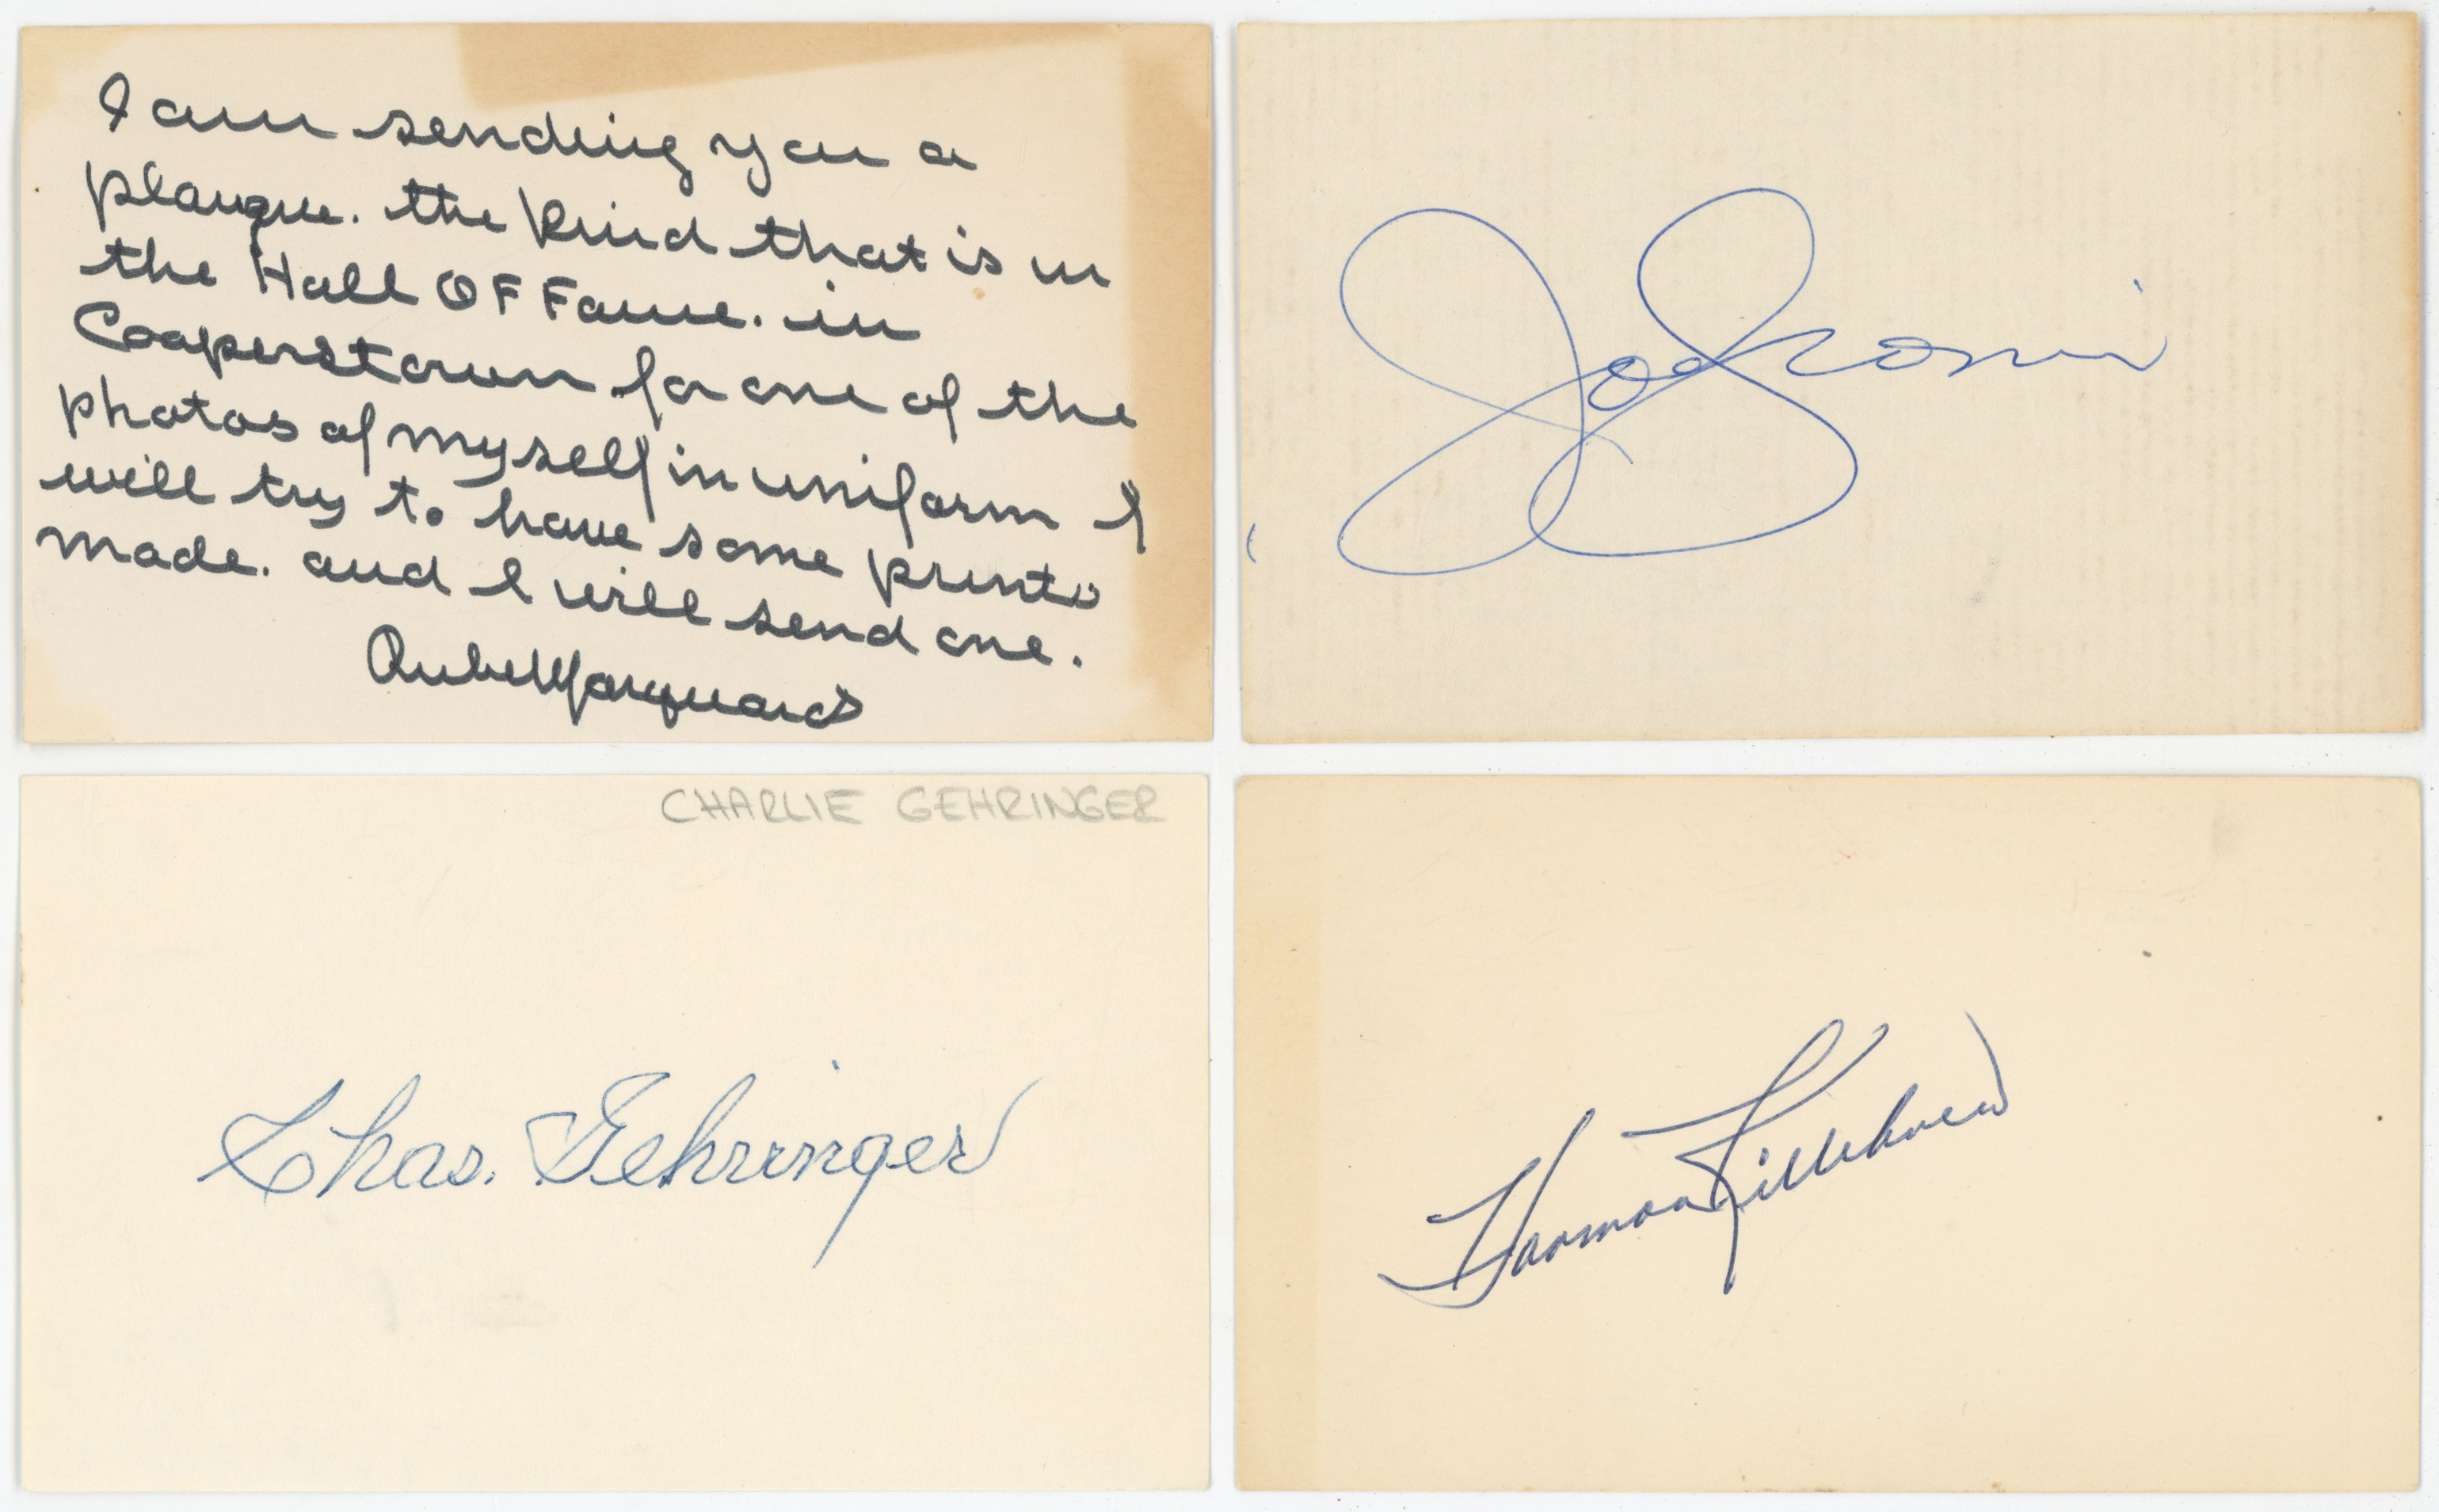 I am sending you a
plauque. the kind that is in
the Hall OF Fame. in
Cooperstown for one of the
photos of myself in uniform I
will try to have some prints
made. and I will send one.
Rube Marquard
Joe Cronin
CHARLIE GEHRINGER
Chas. Gehringer
Harmon Killebrew